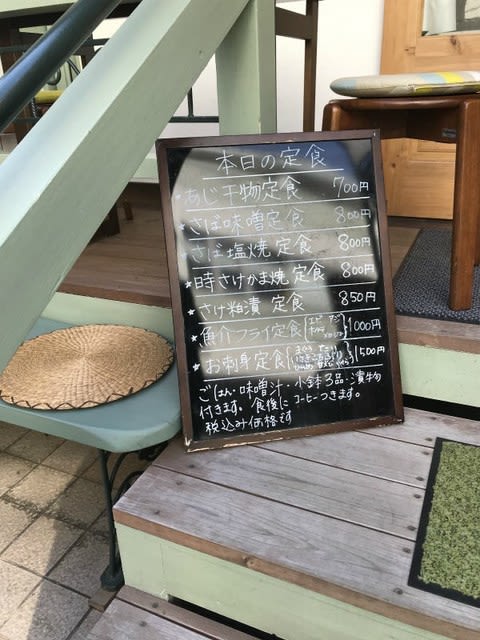 本日の定食
・あじ干物定食 700円
・さば味噌定食 800円
・さば塩焼定食 800円
★時さけかま焼定食 800円
★さけ粕漬定食 850円
★魚介フライ定食 1000円
★お刺身定食 1500円
ごはん・味噌汁・小鉢3品・漬物
付きます。食後にコーヒーつきます。
税込み価格です